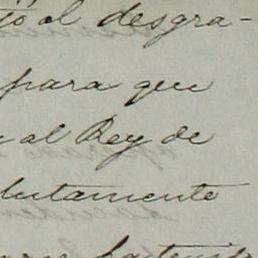 al desgra-
para que
al Rey de
lutamente